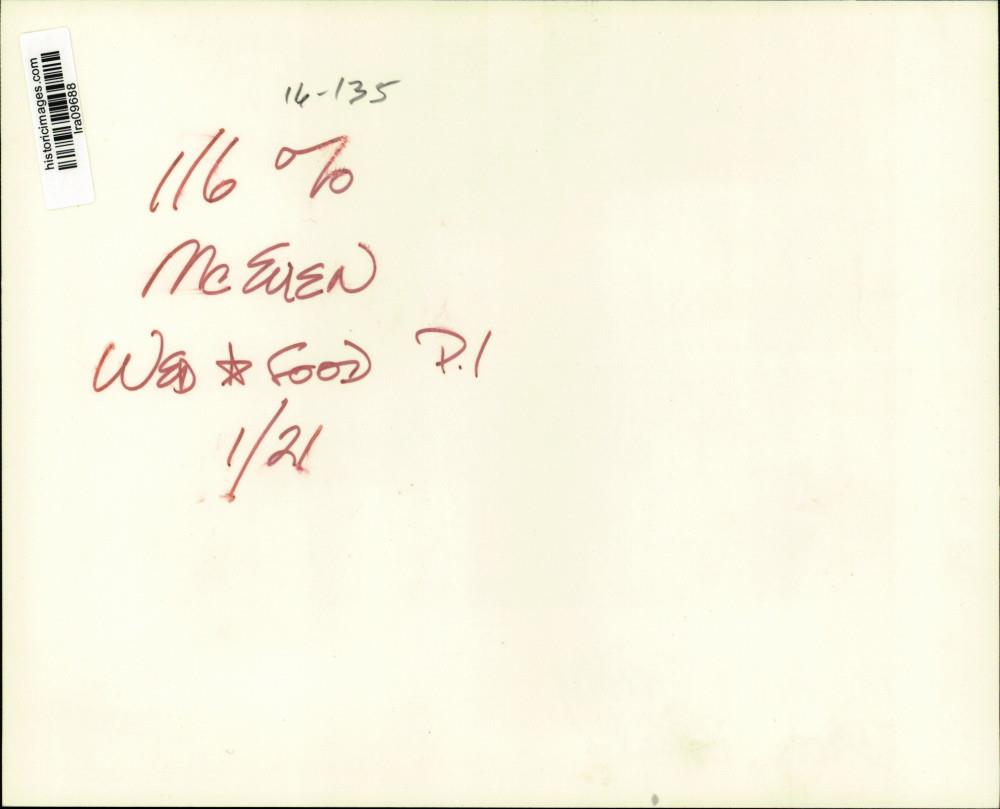 historicimages.com
lra09688
16-135
116 %
McEUEN
WED ★ FOOD P.1
1/21